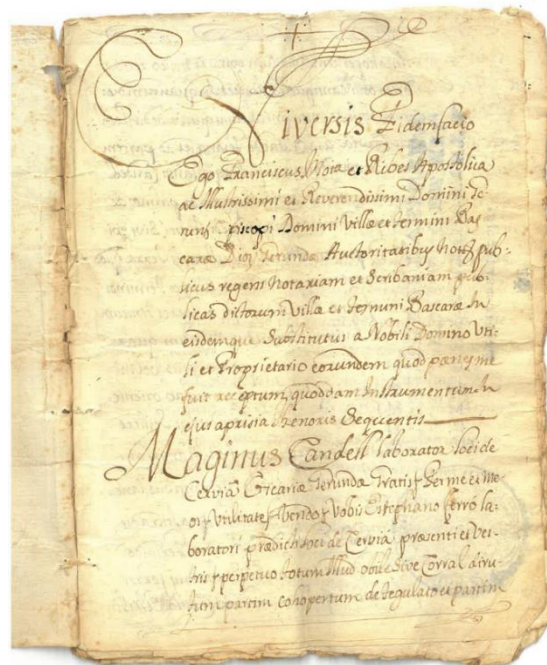 Viversis Fidemfacio
Ego Franciscus Mota et Ribes Apostolica
ac Illustrissimi et Reverendissimi Domini
Episcopi Domini Villæ et termini Bas
caræ Dios Gerundæ Auctoritatibus Nots pub-
licus regens Notariam et Scribaniam pub-
licas dictorum Villæ et termini Bascaræ In
eisdemque Substitutus a Nobili Domino Uti-
li et Proprietario eorundem quod penes me
fuit receptum quoddam Instrumentum
ejus aprisia thenoris Sequentis
Maginus Candell laborator loci de
Cervia Vicariæ Gerundæ Gratis Per me et me
os utilitate Vendo Vobis Estephano ferro la-
boratori prædicti loci de Cervia præsenti et Ves-
tris perpetuo totum Illud Sive Corral diru-
tum partim cohopertum de tegulato et partim